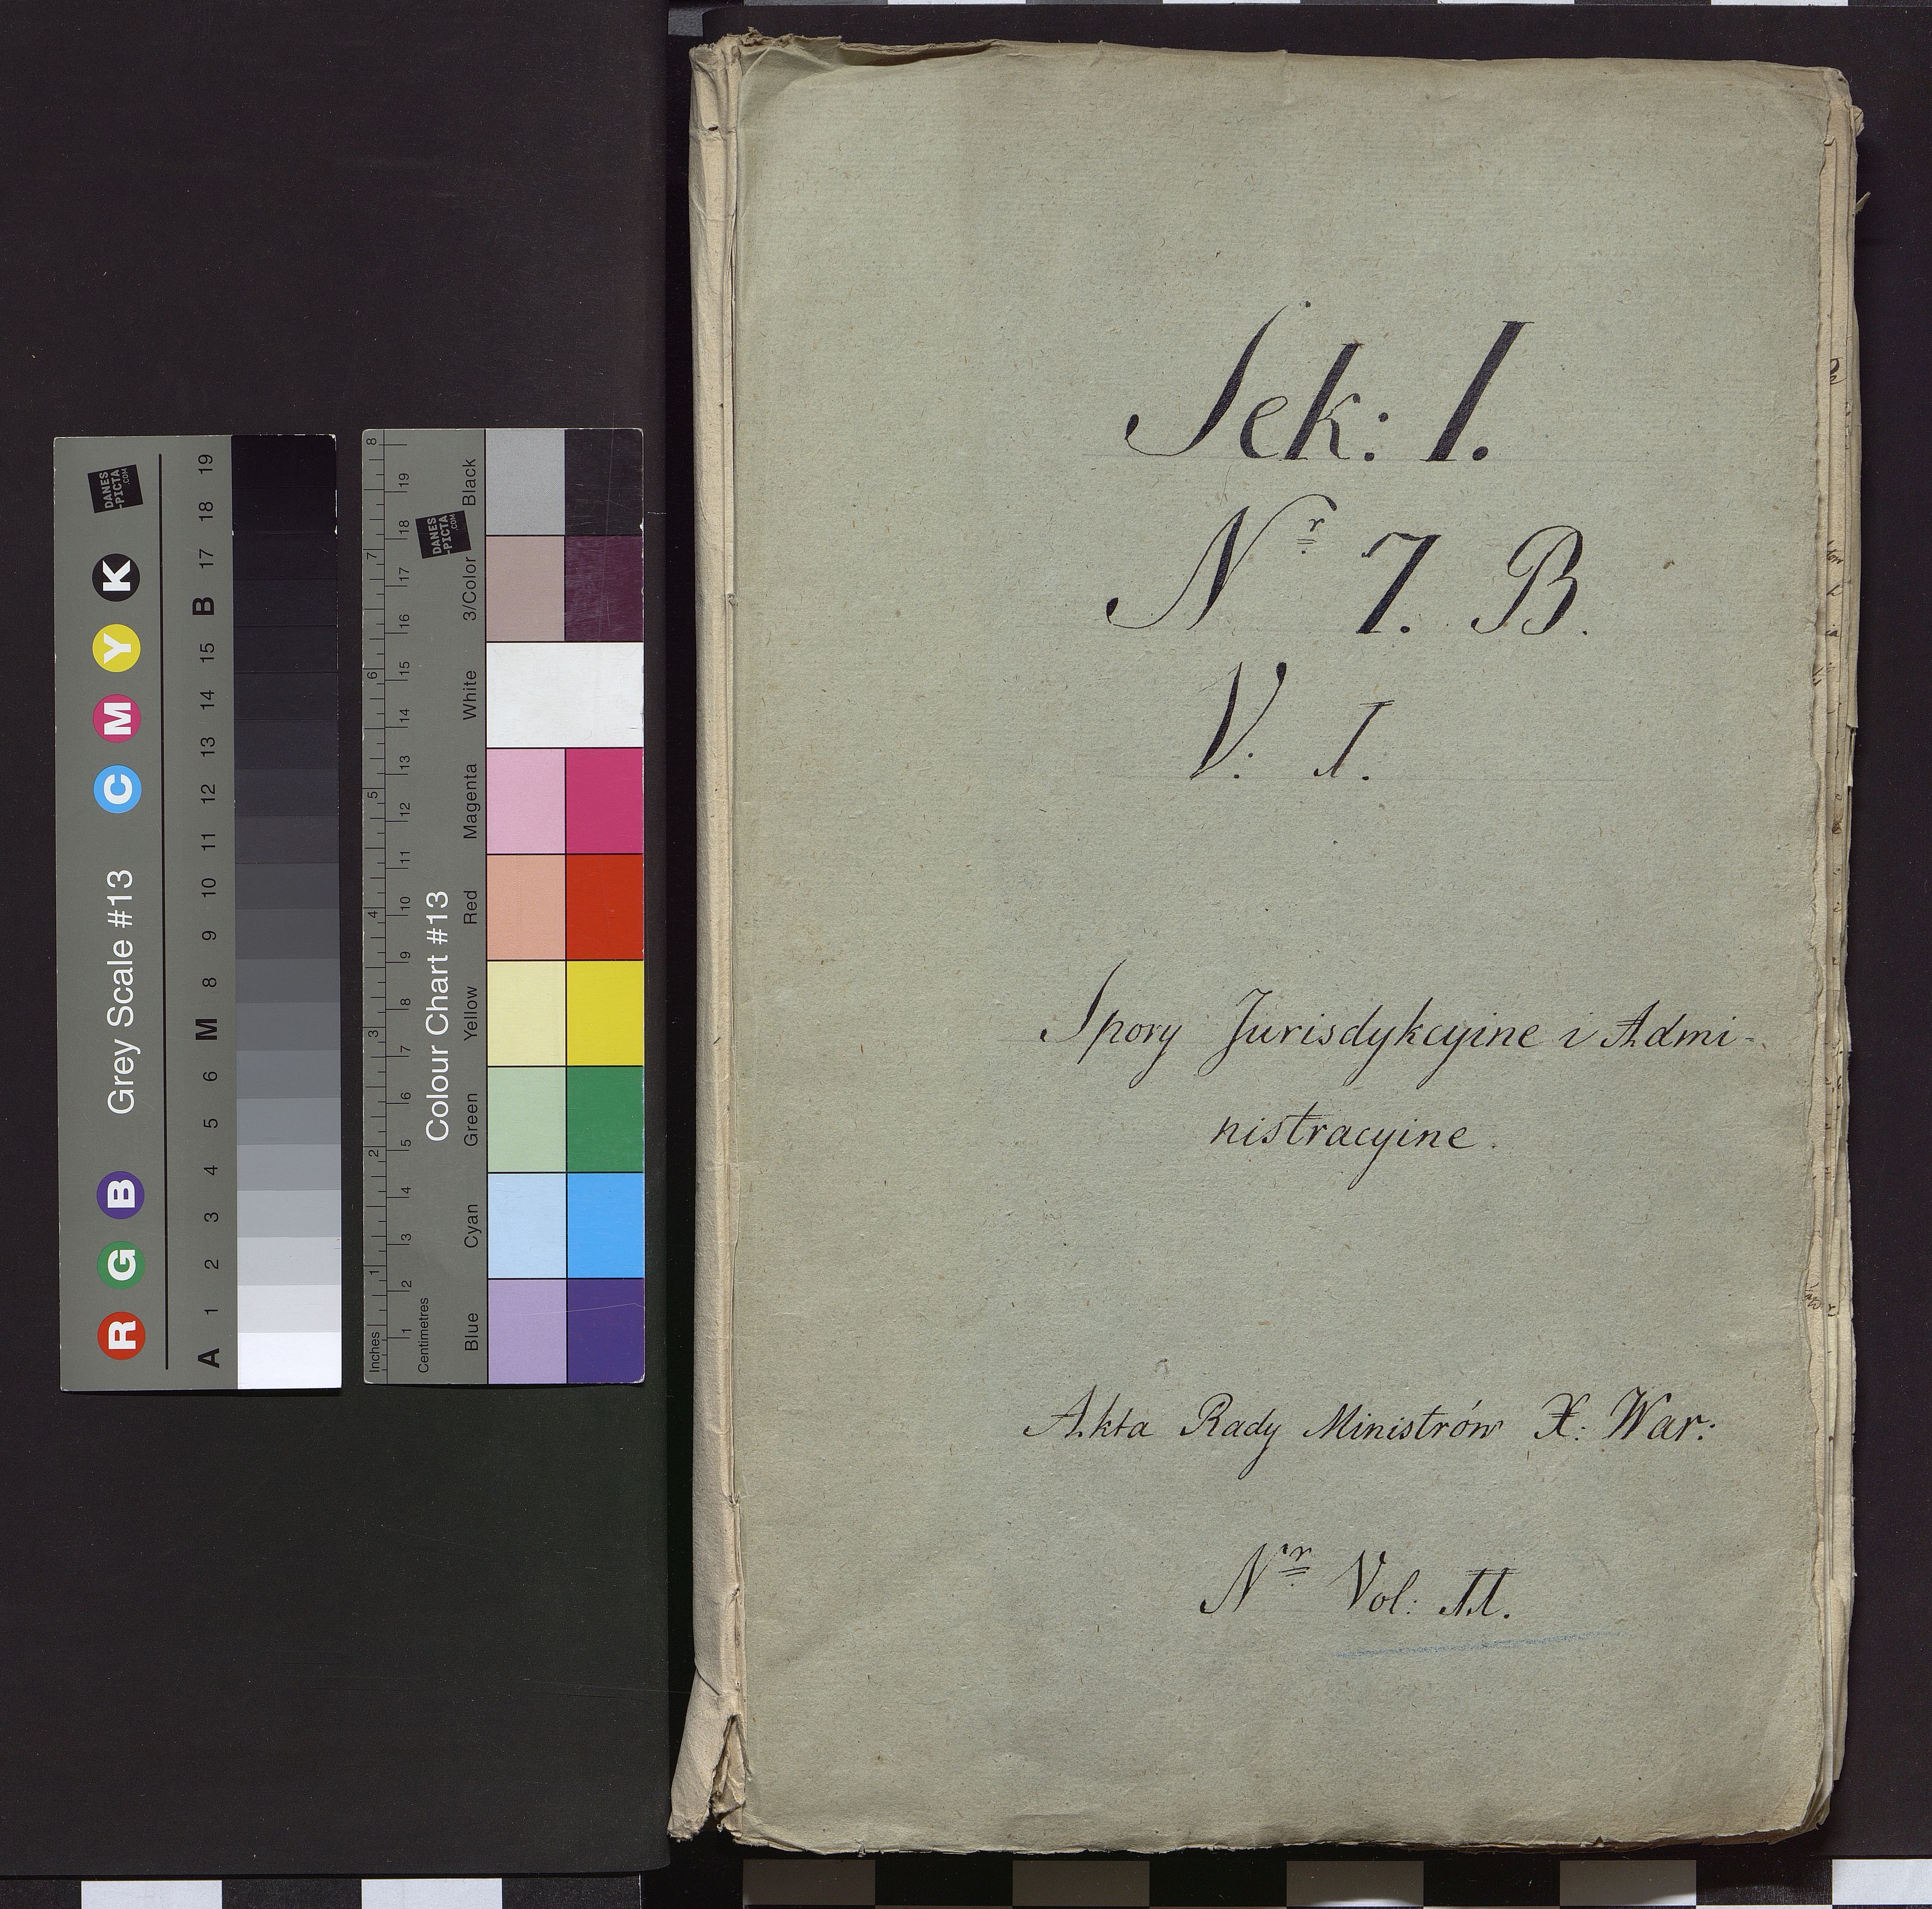 Sek: I.
Nr 7. B.
V: I.
Spory Jurisdykcyine i Admi-
nistracyine.
Akta Rady Ministrów X: War:
Nr Vol: II.
DANES
-PICTA
.COM
Grey Scale #13
R G B C M Y K
A 1 2 3 4 5 6 M 8 9 10 11 12 13 14 15 B 17 18 19
DANES
-PICTA
.COM
Colour Chart #13
Blue Cyan Green Yellow Red Magenta White 3/Color Black
Inches 1 2 3 4 5 6 7 8
Centimetres 1 2 3 4 5 6 7 8 9 10 11 12 13 14 15 16 17 18 19